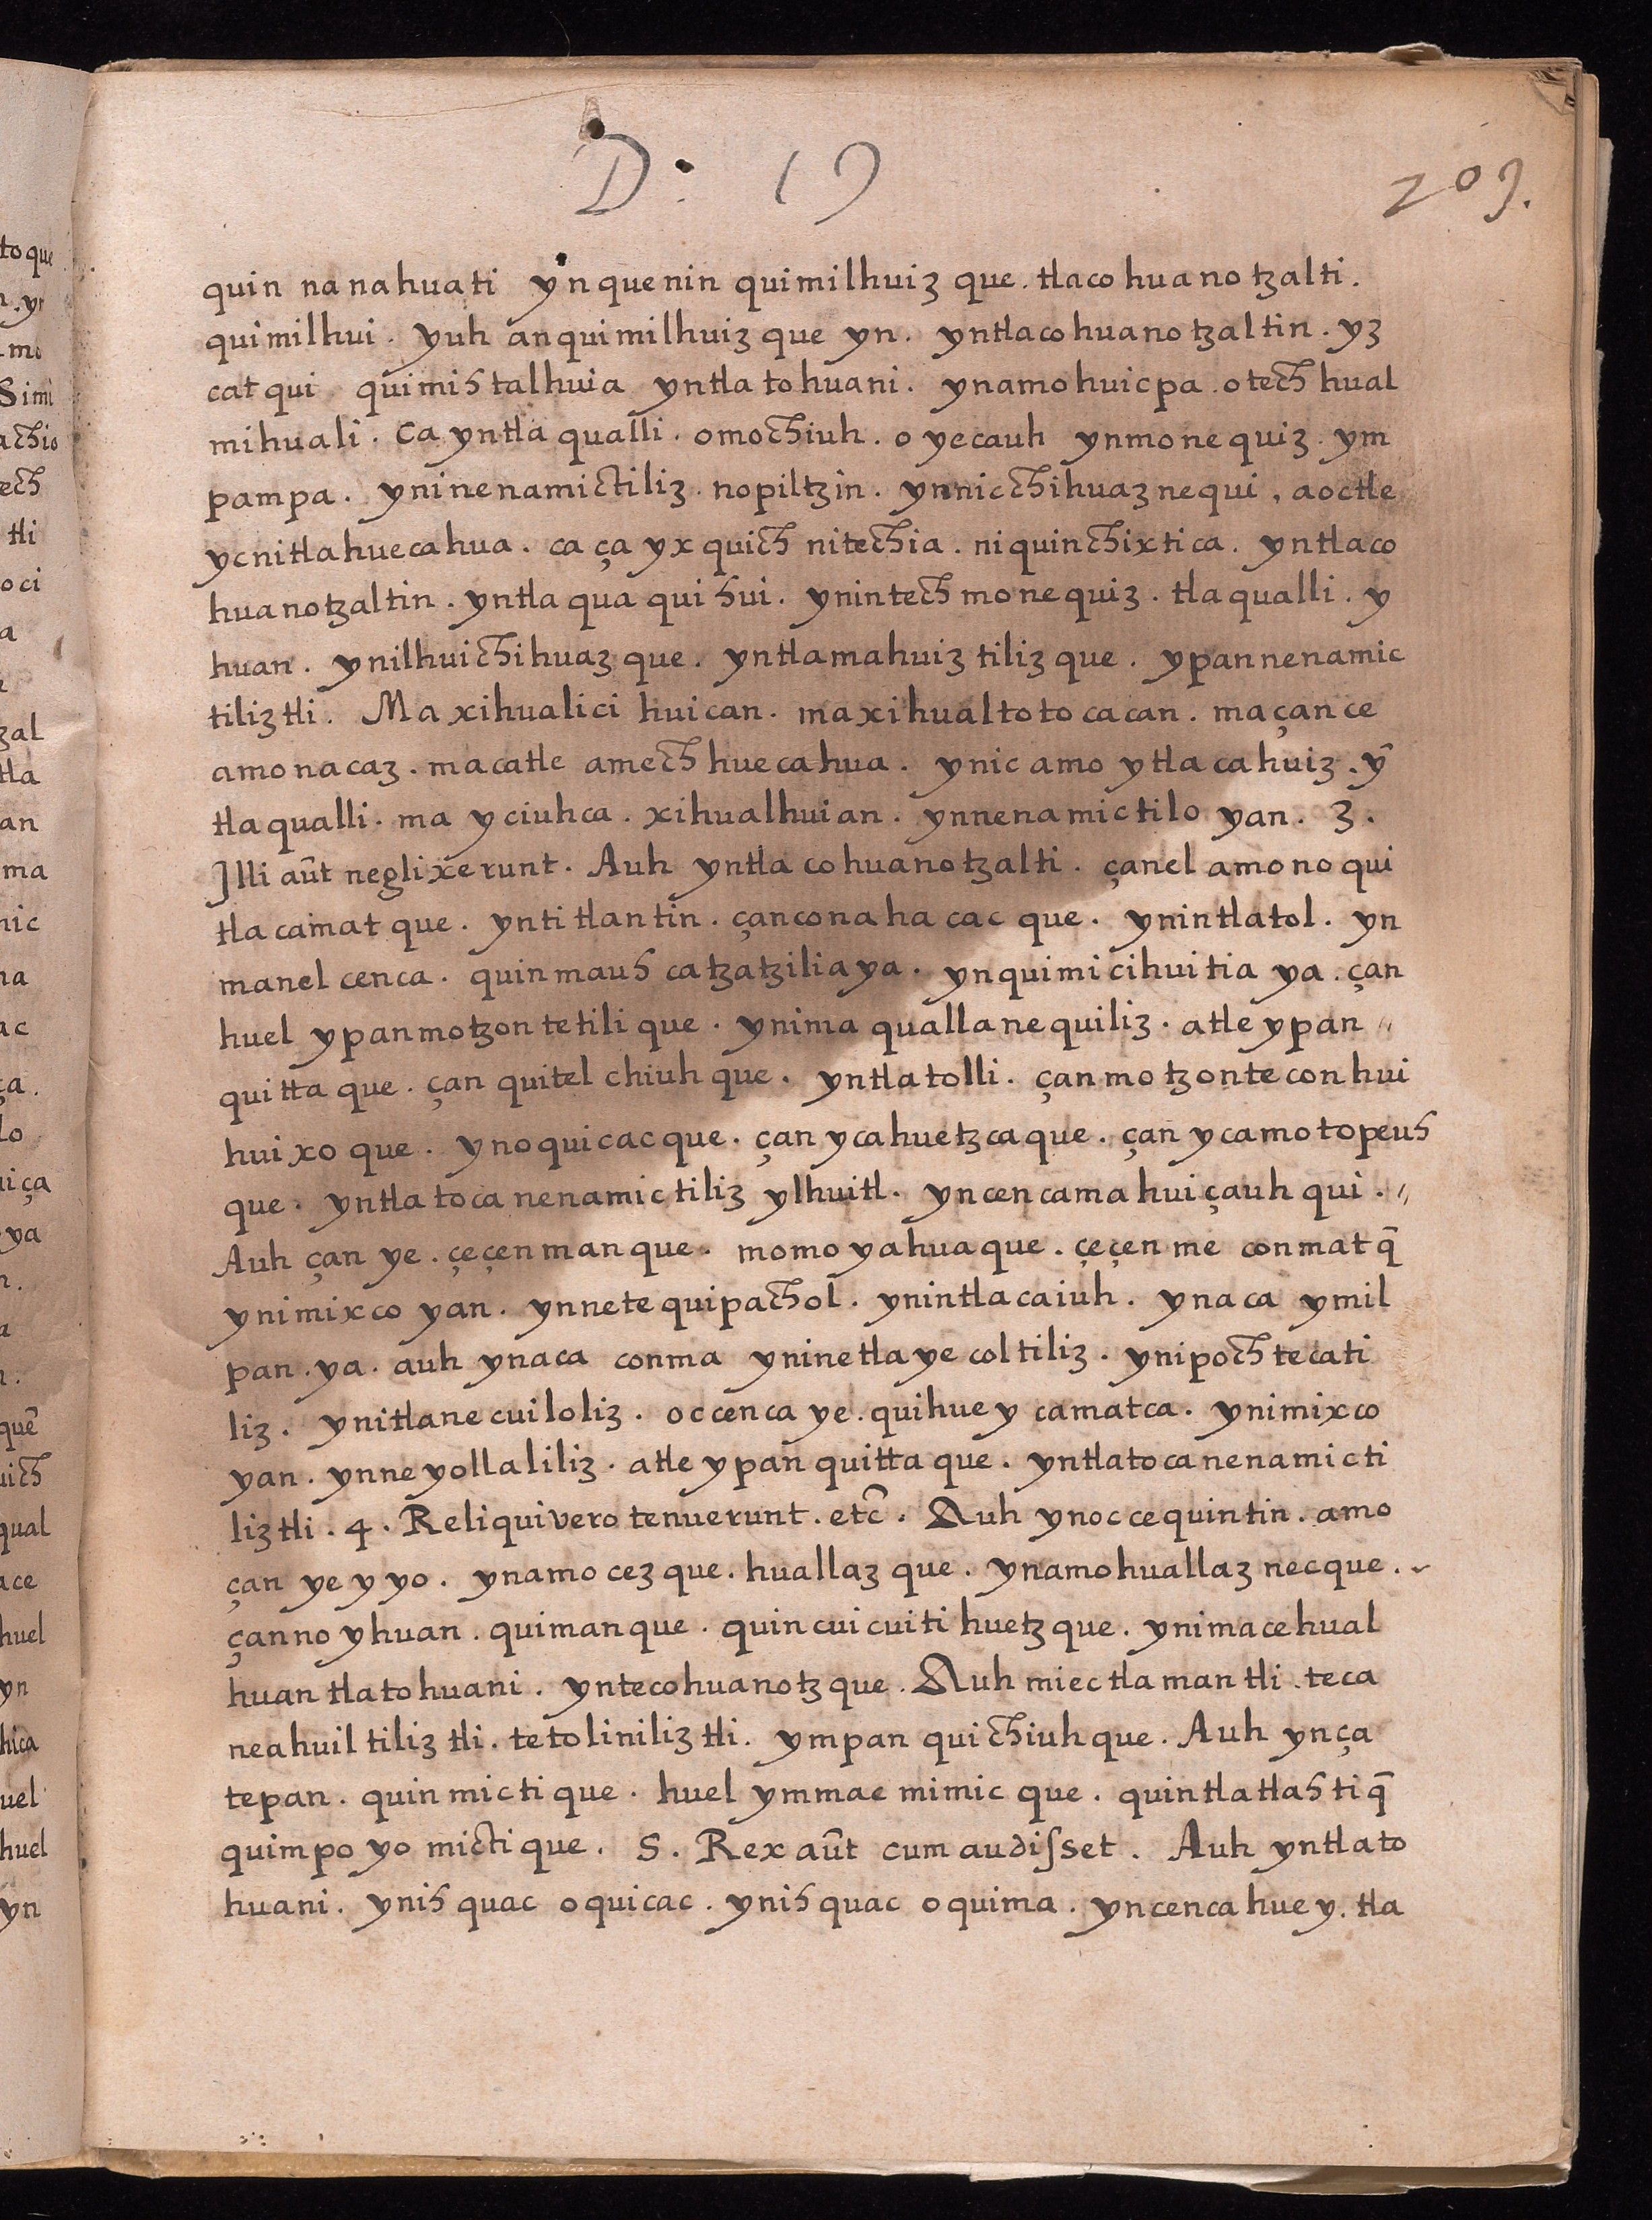 D. 19
209.
quin nanahuati yn quenin quimilhuiz que. tlacohuanotzalti.
quimilhui. yuh anquimilhuiz que yn. yntlacohuanotzaltin. yz
catqui quimistalhuia yntlatohuani. ynamohuicpa. otech hual
mihuali. Ca yntlaqualli. omochiuh. o yecauh ynmonequiz. ym
pampa. yninenamictiliz. nopiltzin. ynnicchihuaznequi, aoctle
ycnitlahuecahua. ca ça yxquich nitechia. niquinchixtica. yntlaco
huanotzaltin. yntlaquaquihui. ynintech monequiz. tlaqualli. y
huan. ynilhuichihuazque. yntlamahuiztilizque. ypannenamic
tiliztli. Ma xihualicihuican. maxihualtotocacan. maçance
amonacaz. macatle amech huecahua. ynic amo ytlacahuiz. ȳ
tlaqualli. ma yciuhca. xihualhuian. ynnenamictiloyan. 3.
Illi aūt neglixerunt. Auh yntlacohuanotzalti. çanel amo no qui
tlacamatque. yntitlantin. çanconahacacque. ynintlatol. yn
manel cenca. quinmauhcatzatziliaya. ynquimicihuitiaya. çan
huel ypanmotzontetilique. ynimaquallanequiliz. atle ypan "
quittaque. çan quitelchiuhque. yntlatolli. çanmotzonteconhui
huixoque. ynoquicacque. çan ycahuetzcaque. çan ycamotopeuh
que. yntlatocanenamictiliz ylhuitl. yncencamahuiçauhqui. "
Auh çan ye. çeçenmanque. momoyahuaque. çeçenme conmatq̄
ynimixcoyan. ynnetequipachol. ynintlacaiuh. ynaca ymil
pan. ya. auh ynaca conma yninetlayecoltiliz. ynipochtecati
liz. ynitlanecuiloliz. occenca ye. quihueycamatca. ynimixco
yan. ynneyollaliliz. atle ypan quittaque. yntlatocanenamicti
liztli. 4. Reliqui vero tenuerunt. etc̄. Auh ynoccequintin. amo
çan yeyyo. ynamo cezque. huallazque. ynamohuallaznecque.
çanno yhuan. quimanque. quincuicuitihuetzque. ynimacehual
huan tlatohuani. yntecohuanotzque. Auh miectlamantli. teca
neahuiltiliztli. tetoliniliztli. ympan quichiuhque. Auh ynça
tepan. quinmictique. huel ymmac mimicque. quintlatlahtiq̄
quimpoyomictique. S. Rex aūt cum audiſset. Auh yntlato
huani. ynihquac oquicac. ynihquac oquima. yncencahuey. tla